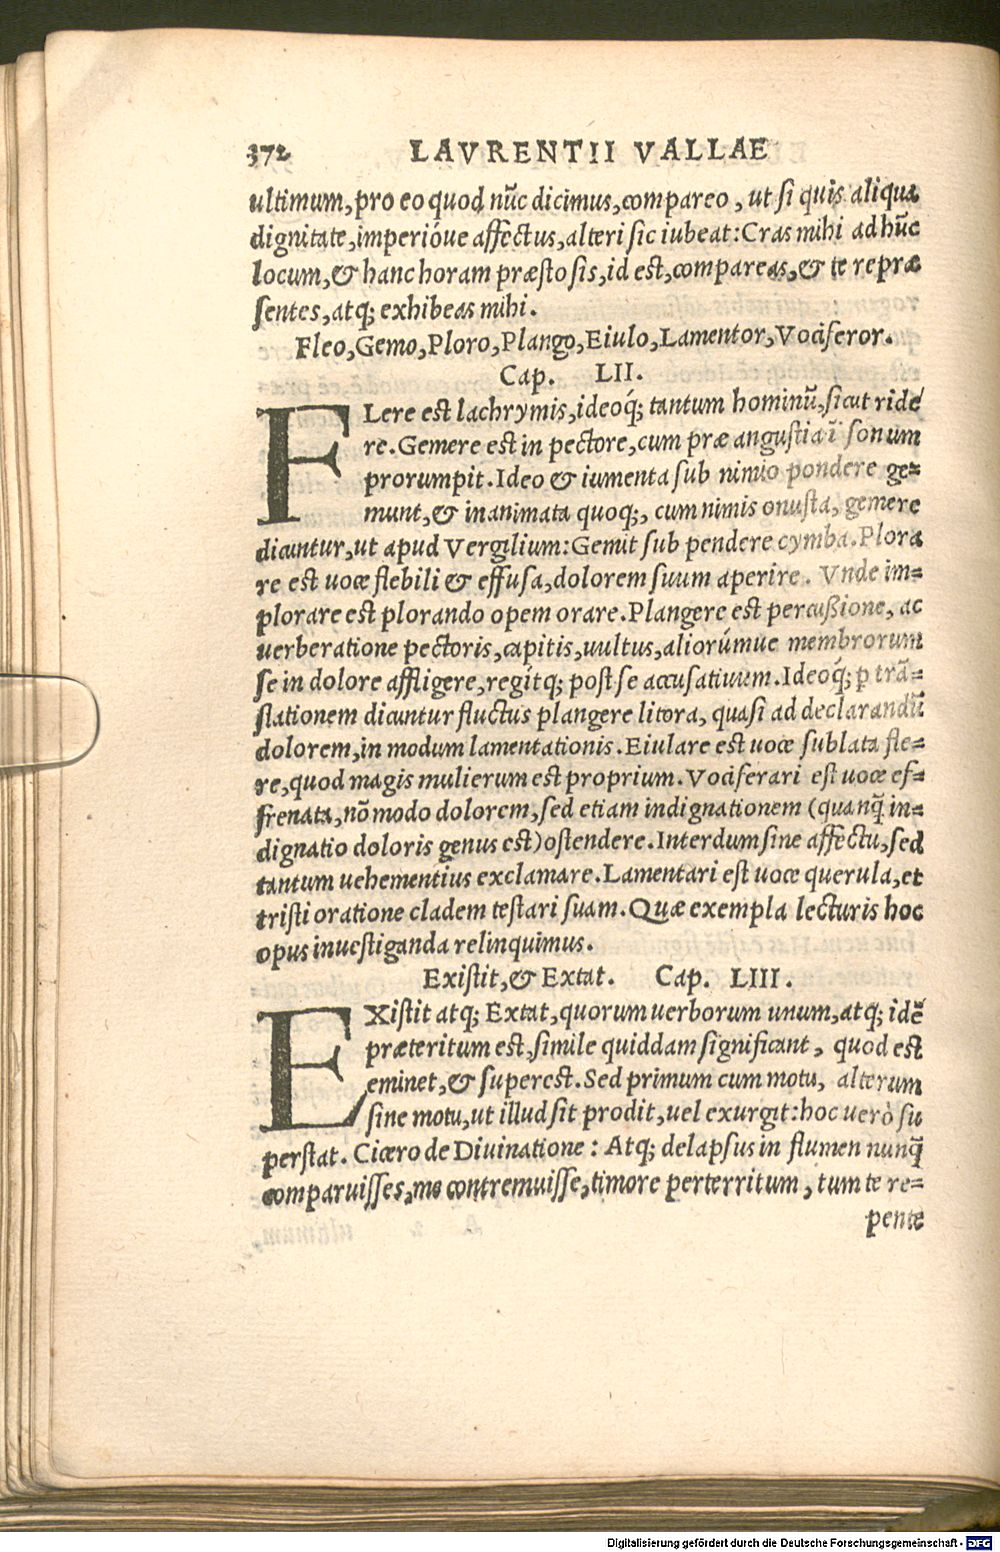 372 LAVRENTII VALLAE
ultimum, pro eo quod nūc dicimus, compareo, ut si quis aliqua
dignitate, imperióue affectus, alteri sic iubeat: Cras mihi ad hūc
locum, & hanc horam præsto sis, id est, compareas, & te repræ
sentes, atq; exhibeas mihi.
Fleo, Gemo, Ploro, Plango, Eiulo, Lamentor, Vociferor.
Cap. LII.
FLere est lachrymis, ideoq́; tantum hominū, sicut ride
re. Gemere est in pectore, cum præ angustia ī sonum
prorumpit. Ideo & iumenta sub nimio pondere ge=
munt, & inanimata quoq;, cum nimis onusta, gemere
dicuntur, ut apud Vergilium: Gemit sub pendere cymba. Plora
re est uoce flebili & effusa, dolorem suum aperire. Vnde im=
plorare est plorando opem orare. Plangere est percußione, ac
uerberatione pectoris, capitis, uultus, aliorúmue membrorum
se in dolore affligere, regítq; post se accusatiuum. Ideoq́; ꝑ trā=
slationem dicuntur fluctus plangere litora, quasi ad declarandū
dolorem, in modum lamentationis. Eiulare est uoce sublata fle=
re, quod magis mulierum est proprium. Vociferari est uoce ef=
frenata, nō modo dolorem, sed etiam indignationem (quanq̄ in=
dignatio doloris genus est) ostendere. Interdum sine affectu, sed
tantum uehementius exclamare. Lamentari est uoce querula, et
tristi oratione cladem testari suam. Quæ exempla lecturis hoc
opus inuestiganda relinquimus.
Existit, & Extat. Cap. LIII.
EXistit atq; Extat, quorum uerborum unum, atq; idē
præteritum est, simile quiddam significant, quod est
eminet, & superest. Sed primum cum motu, alterum
sine motu, ut illud sit prodit, uel exurgit: hoc uerò su
perstat. Cicero de Diuinatione: Atq; delapsus in flumen nunq̄
comparuisses, me contremuisse, timore perterritum, tum te re=
pente
Digitalisierung gefördert durch die Deutsche Forschungsgemeinschaft - DFG